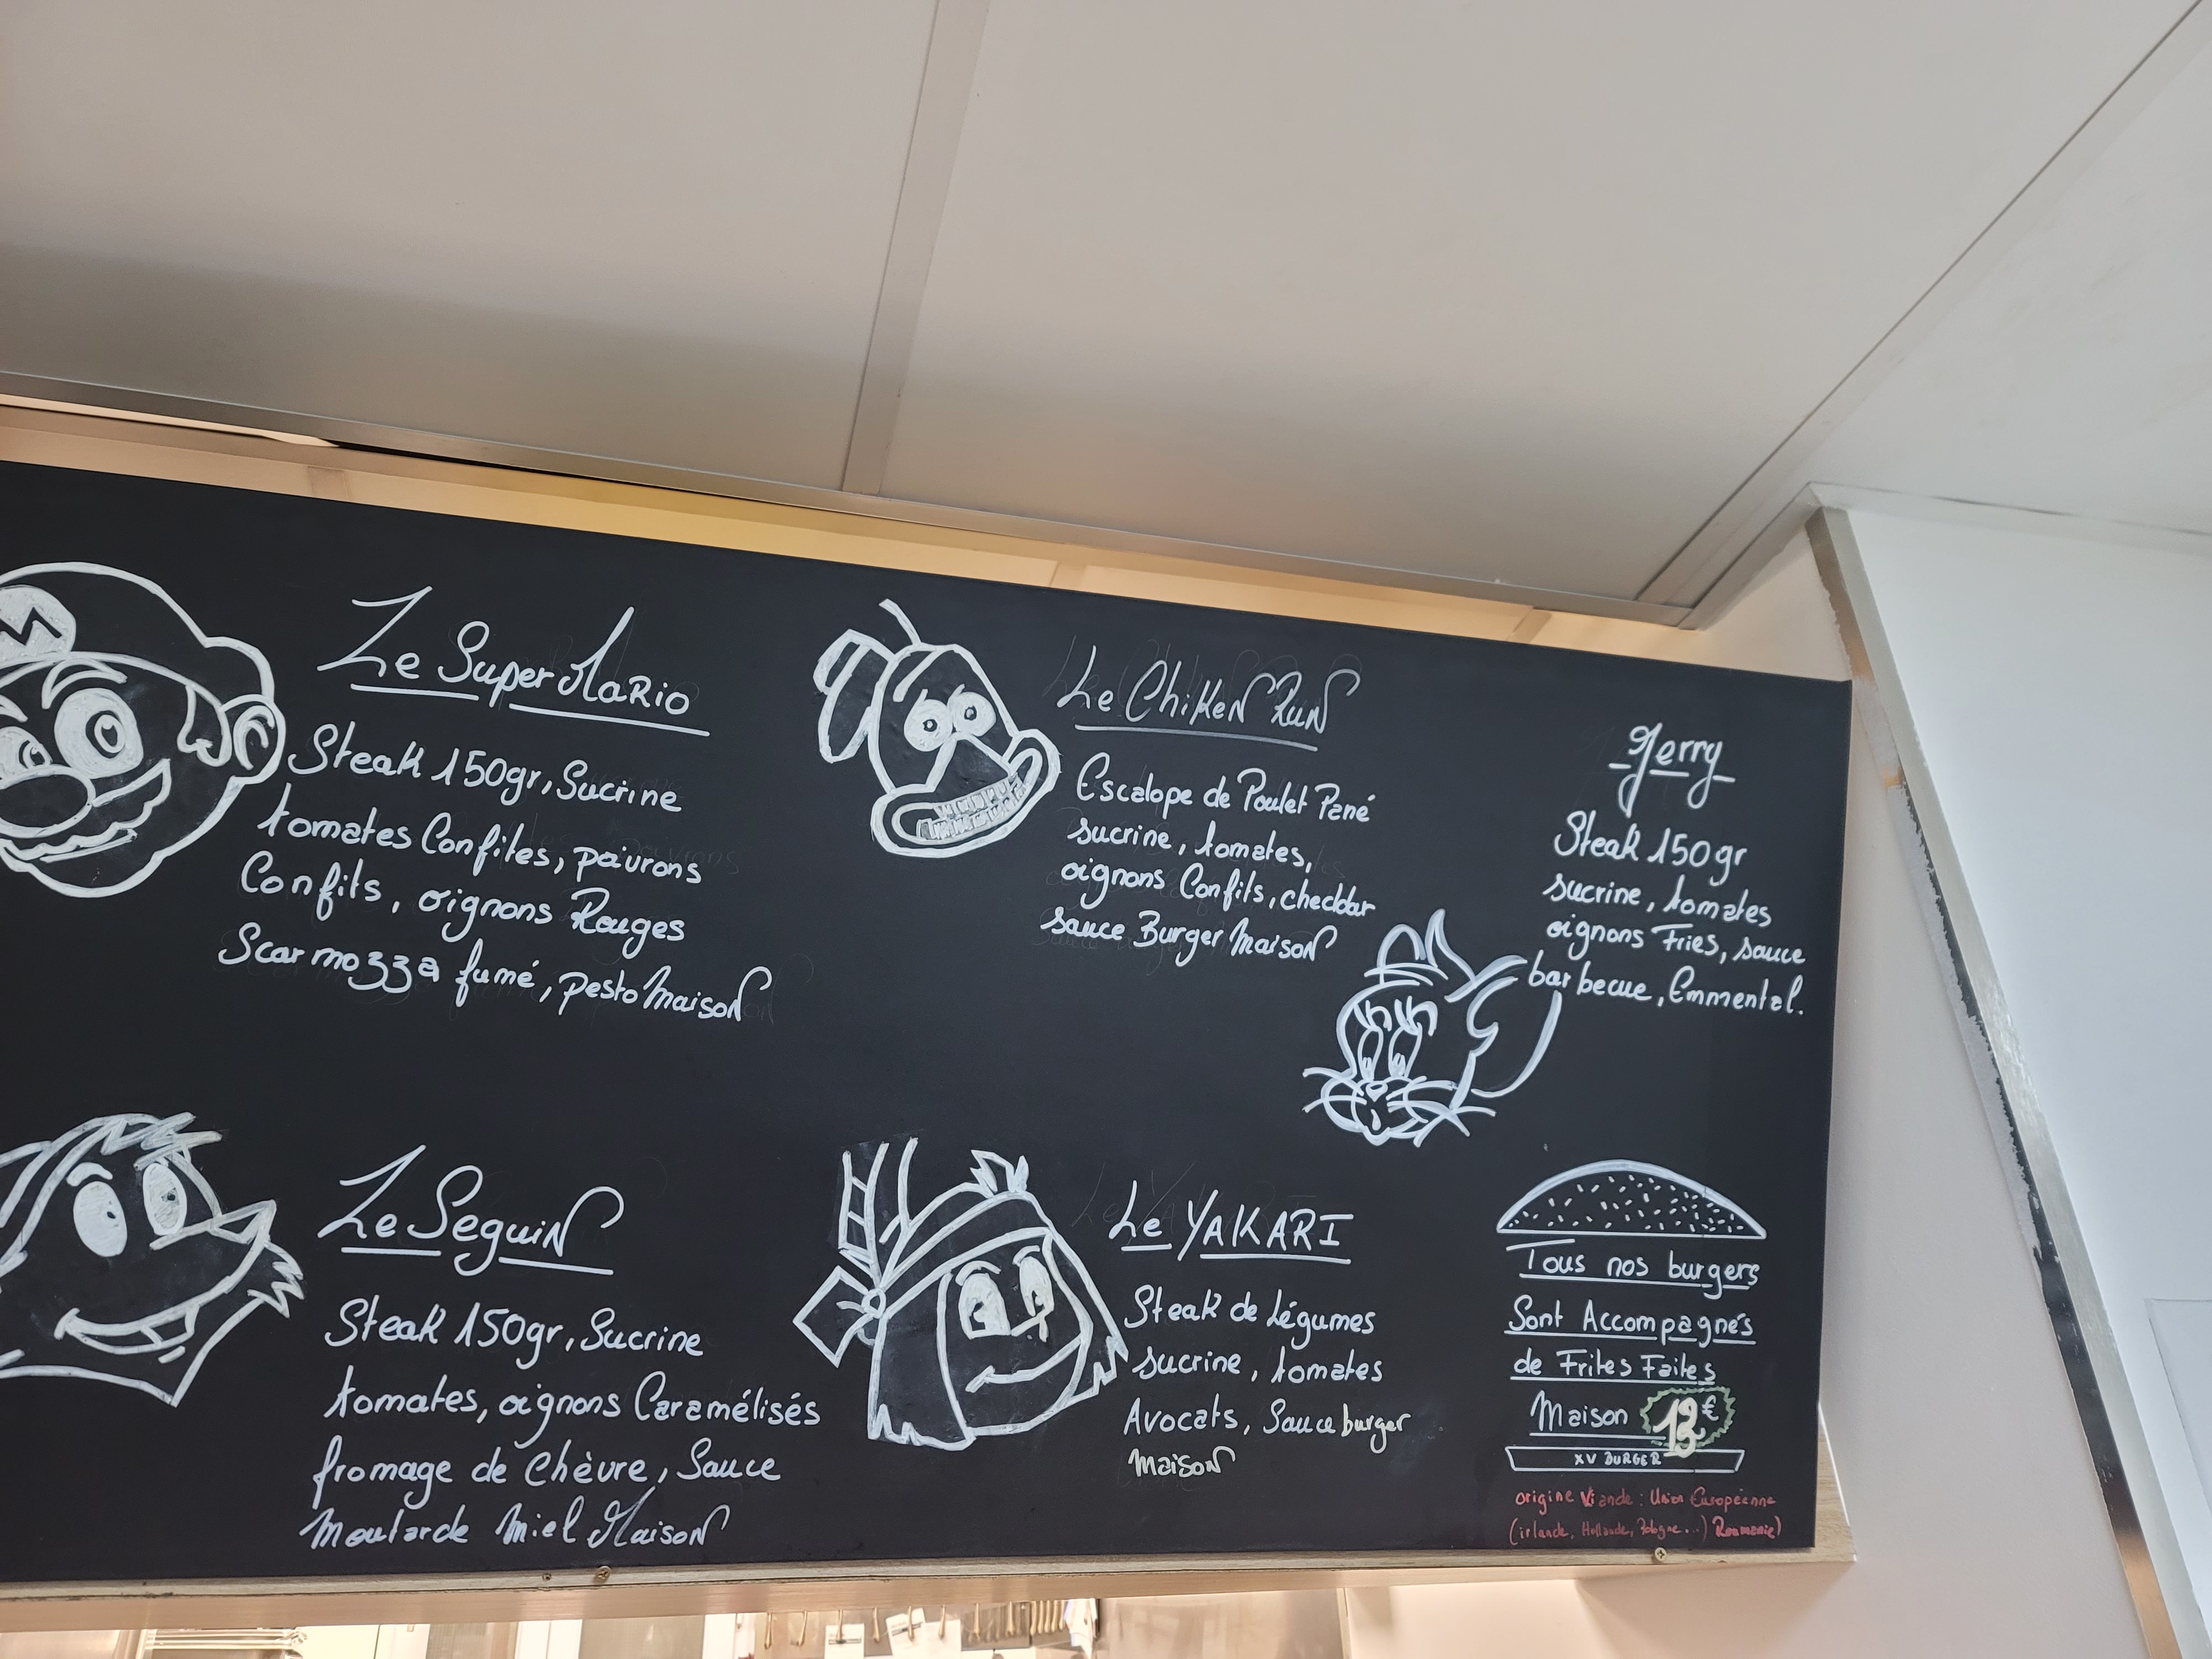 M
Le Super Mario
Steak 150gr, Sucrine
tomates Confites, poivrons
Confits, oignons Rouges
Scarmozza fumé, pesto Maison
Le Chiken Run
Escalope de Poulet Pané
sucrine, tomates,
oignons Confits, cheddar
sauce Burger Maison
Jerry
Steak 150gr
sucrine, tomates
oignons Fries, sauce
barbecue, Emmental.
Le Seguin
Steak 150gr, Sucrine
tomates, oignons Caramélisés
fromage de Chèvre, Sauce
Moutarde Miel Maison
Le YAKARI
Steak de Légumes
sucrine, tomates
Avocats, Sauce burger
Maison
Tous nos burgers
Sont Accompagnés
de Frites Faites
Maison 13€
XV BURGER
origine Viande : Union Européenne
(irlande, Hollande, Pologne...) Roumanie)